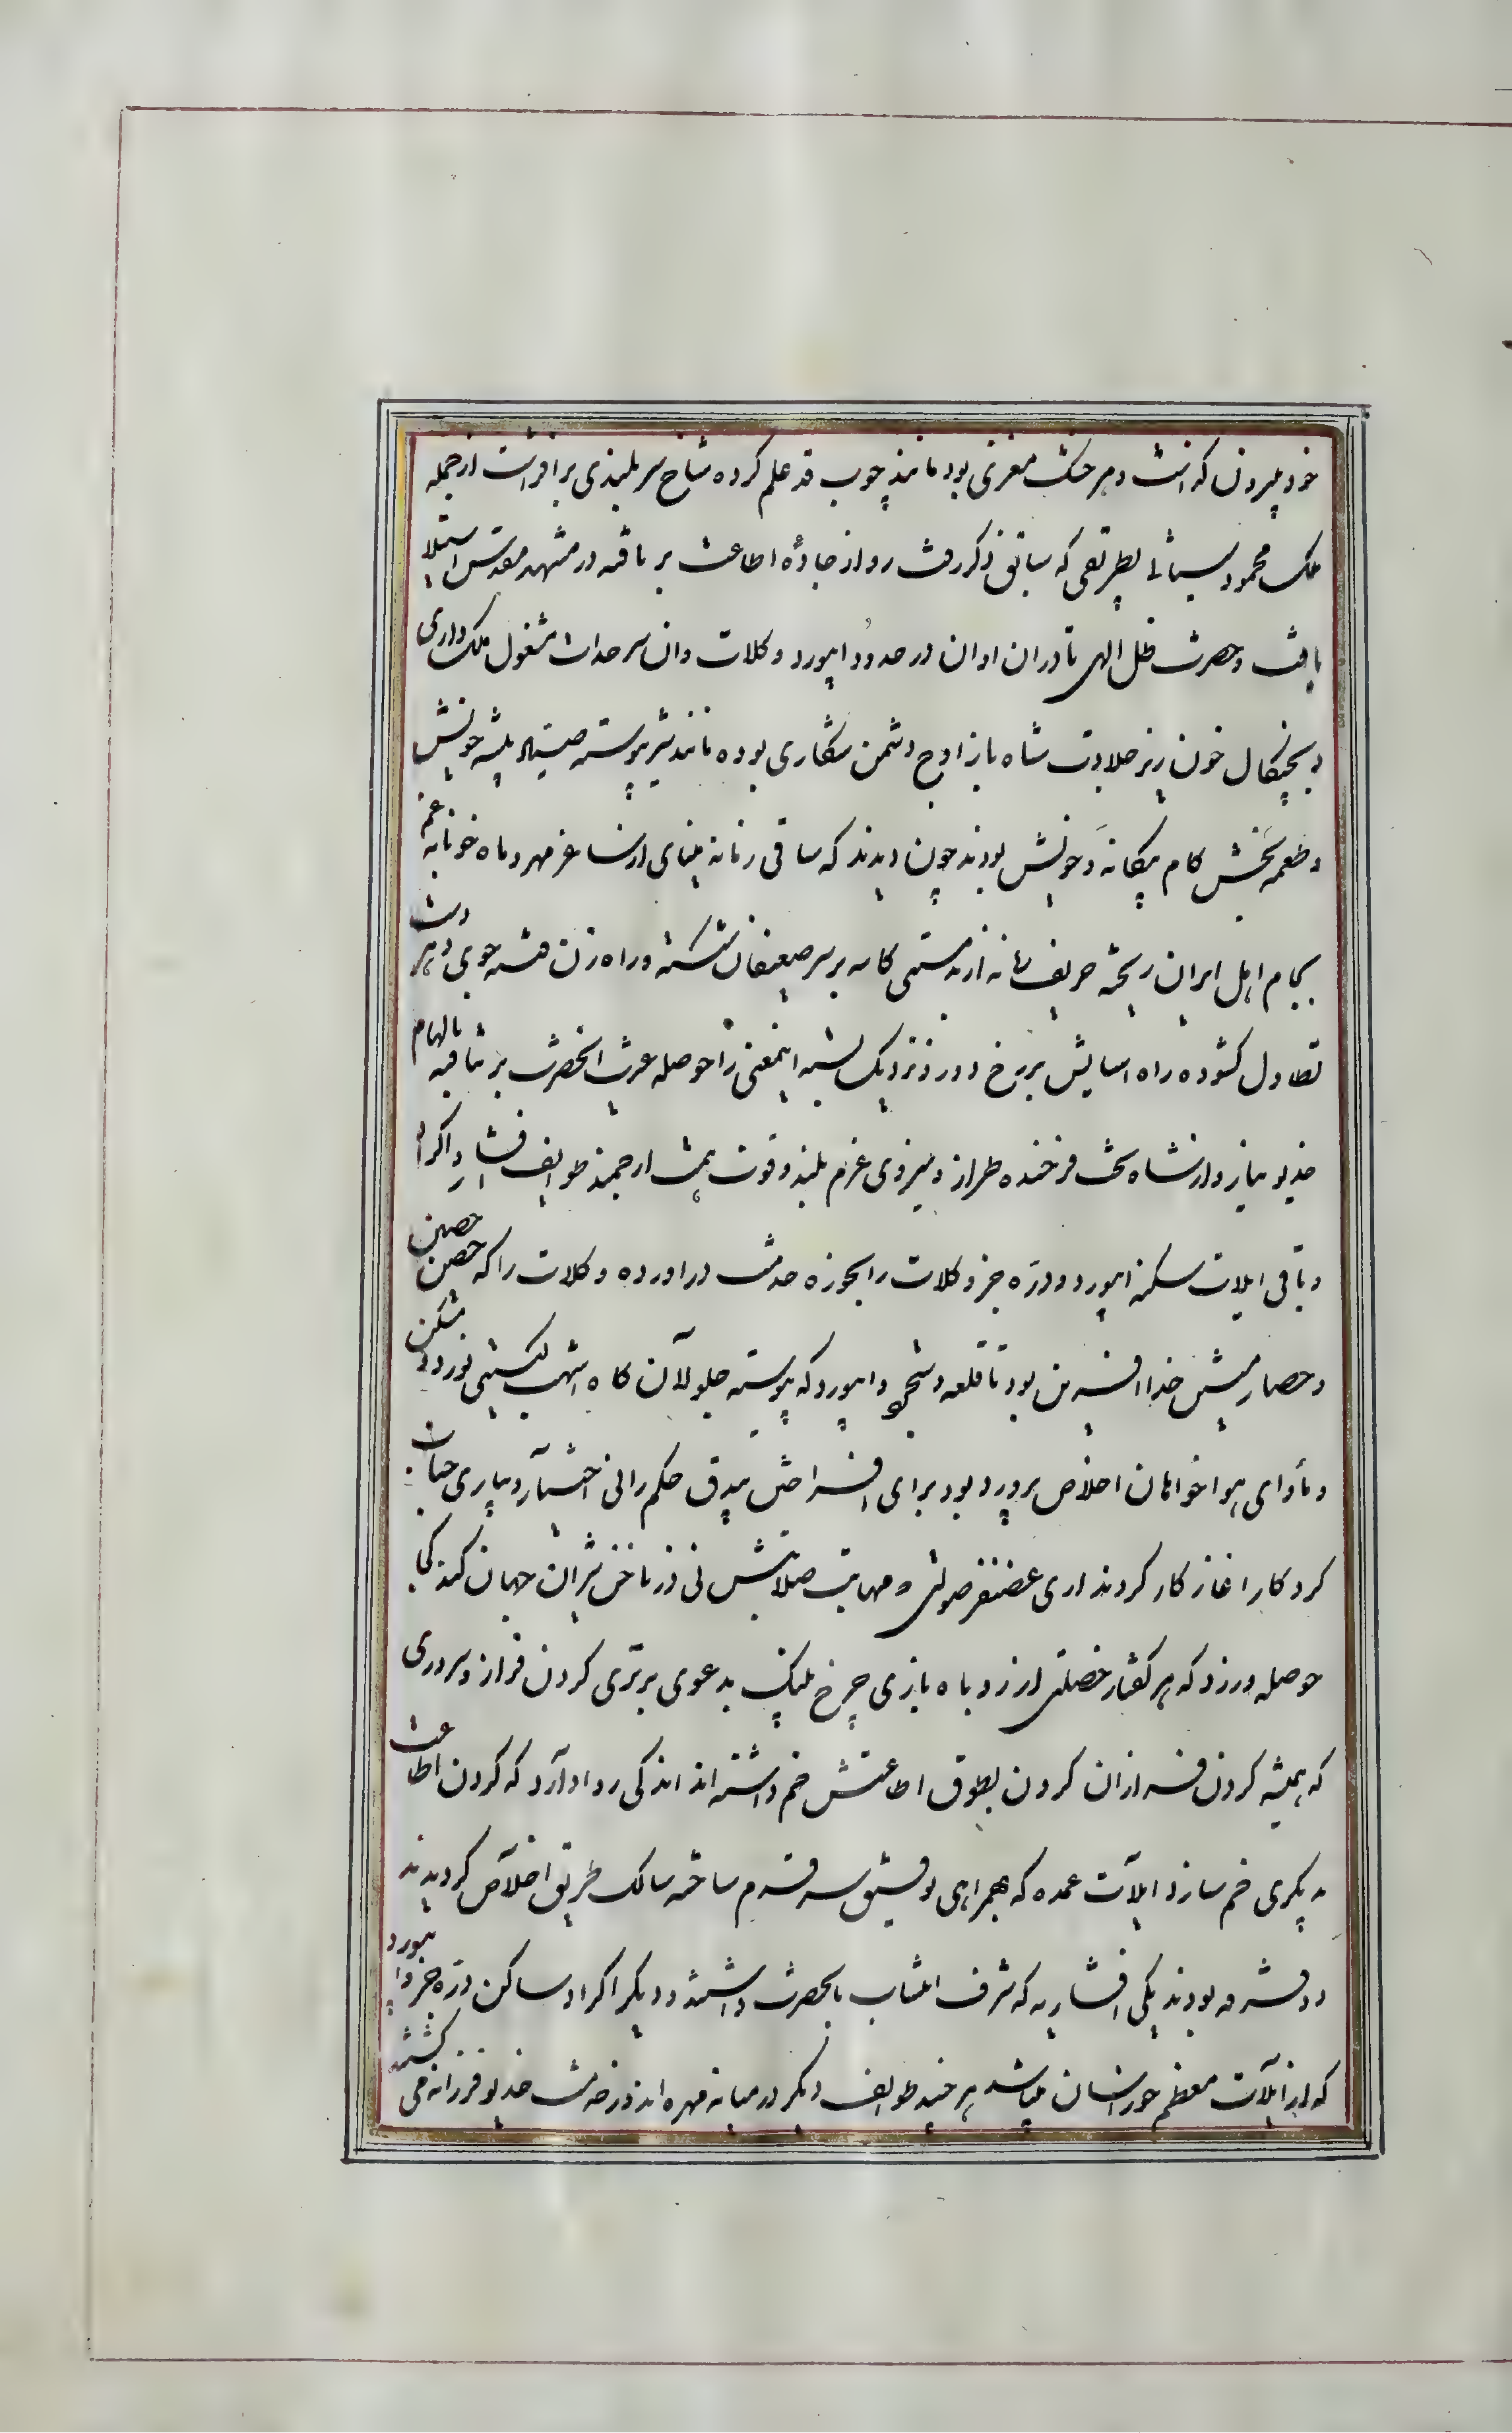 خود بیرون گذاشت و هر خشک مغزی بود مانند چوب قد علم کرده شاخ سربلندی برافراشت از جمله
ملک محمود سیستانی بطریقی که سابق ذکر رفت رو از جادهٔ اطاعت بر تافته در مشهد مقدس استیلا
یافت و حضرت ظل الهی تا دران اوان در حدود ابیورد و کلات وان سرحدات مشغول ملک داری
و بچنکال خون ریز جلادت شاه باز اوج دشمن شکاری بوده مانند شیر پیوسته صید پیشه خویش
و طعمه بخش کام بیکانه و خویش بودند چون دیدند که ساقی زمانه مینای از ساغر مهر و ماه خونابه غم
بجام اهل ایران ریخته حریف زمانه از بدمستی کاسه بر سر ضعیفان شکسته و راه زن فتنه جوی دهر دست
تطاول کشوده راه اسایش بر رخ دور و نزدیک بسته اینمعنی را حوصله غیرت انحضرت بر نتافته بالهام
خدیو بی نیاز و ارشاد بخت فرخنده طراز و نیروی عزم بلند و قوت همت ارجمند طوایف افشار و اکراد
و باقی ایلات سکنه ابیورد و دره جز و کلات را بحوزه خدمت دراورده و کلات را که حصن حصین
و حصار متین خدا افرین بود تا قلعه دستجرد و ابیورد که پیوسته جولان کاه اشهب کیتی نورد و مسکن
و ماوای هواخواهان اخلاص پرورد بود برای افراختن بیدق حکم رانی اختیار و بیاری جناب
کردکار اغاز کار کردند اری غضنفر صولتی و مهابت صلابتش نی در ناخن شیران جهان کند کی
حوصله ورزد که هر کفتار خصلتی از روباه بازی چرخ پلنک بدعوی برتری کردن فرازد و سروری
که همیشه کردن فرازان کردن بطوق اطاعتش خم داشته اند اندکی روا دارد که کردن اطاعت
بدیکری خم سازد ایلات عمده که بهمراهی توفیق سر قدم ساخته سالک طریق اخلاص کردیدند
دو فرقه بودند یکی افشاریه که شرف انتساب بانحضرت داشتند و دیکر اکراد ساکن دره جز و ابیورد
که از ایلات معظم خوراسان میباشد هر چند طوایف دیکر در میانه مهره اند در خدمت خدیو فرزانه می کشتند